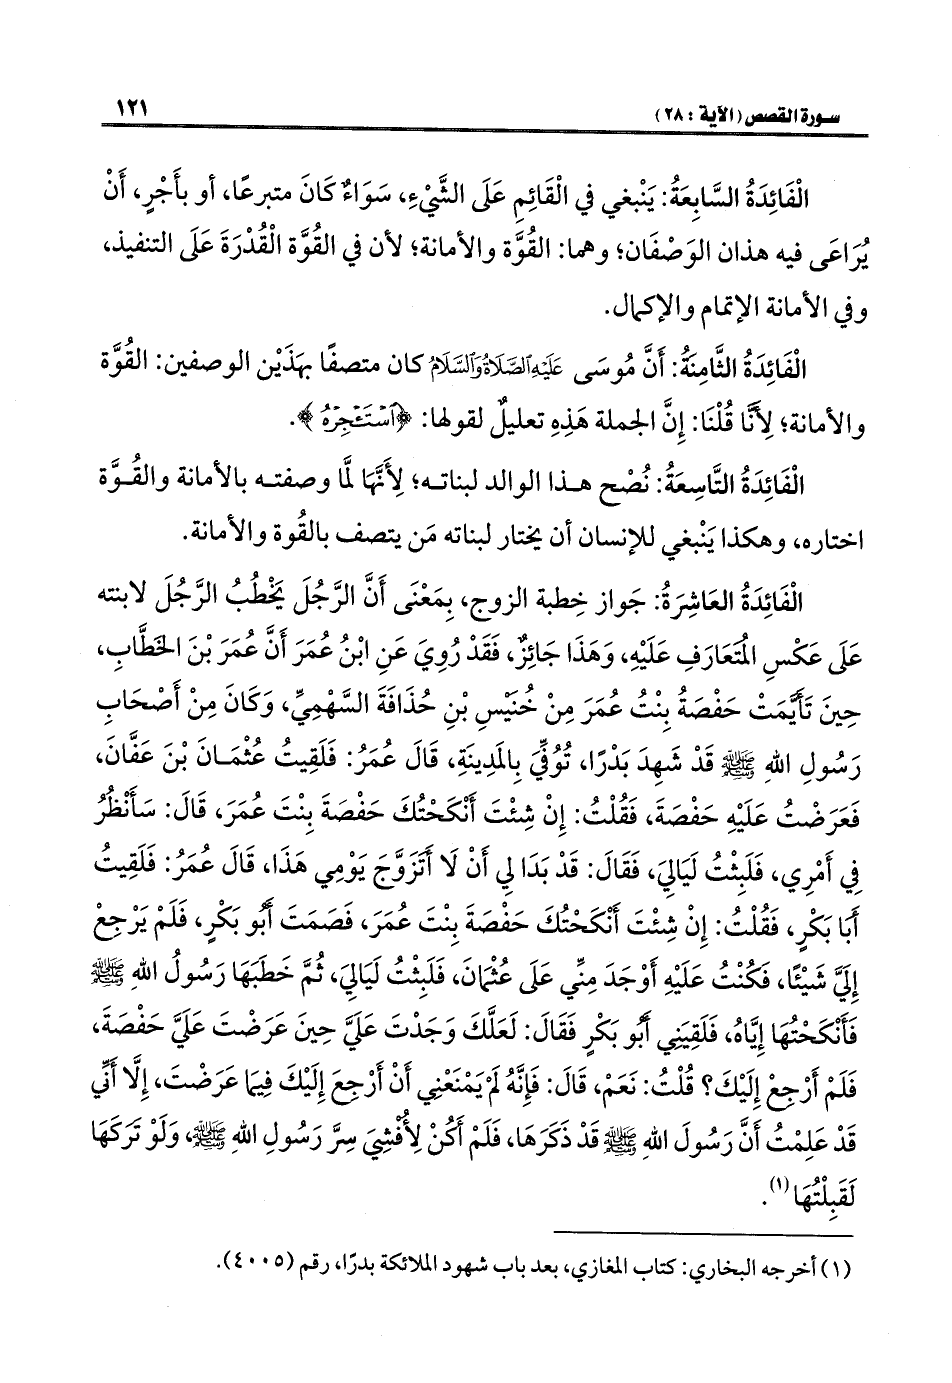 سورة القصص (الآية : ٢٨)
١٢١
الْفَائِدَةُ السَّابِعَةُ: يَنْبغي في الْقَائِمِ عَلَى الشَّيْءِ، سَوَاءٌ كَانَ متبرعًا، أو بأَجْرٍ، أَنْ
يُرَاعَى فيه هذان الوَصْفَان؛ وهما: القُوَّة والأمانة؛ لأن في القُوَّة الْقُدْرَةَ عَلَى التنفيذ،
وفي الأمانة الإتمام والإكمال.
الْفَائِدَةُ الثَّامِنَةُ: أَنَّ مُوسَى عَلَيْهِ الصَّلَاةُ وَالسَّلَامُ كان متصفًا بهَذَيْن الوصفين: القُوَّة
والأمانة؛ لِأَنَّا قُلْنَا: إِنَّ الجملة هَذِهِ تعليلٌ لقولها: ﴿اسْتَـْٔجِرْهُ﴾.
الْفَائِدَةُ التَّاسِعَةُ: نُصْح هذا الوالد لبناته؛ لِأَنَّهَا لمَّا وصفته بالأمانة والقُوَّة
اختاره، وهكذا يَنْبغي للإنسان أن يختار لبناته مَن يتصف بالقُوة والأمانة.
الْفَائِدَةُ العَاشِرَةُ: جَواز خِطبة الزوج، بِمَعْنَى أَنَّ الرَّجُلَ يَخْطُبُ الرَّجُلَ لابنته
عَلَى عَكْسِ المُتَعَارَفِ عَلَيْهِ، وَهَذَا جَائِزٌ، فَقَدْ رُوِيَ عَنِ ابْنُ عُمَرَ أَنَّ عُمَرَ بْنَ الخَطَّابِ،
حِينَ تَأَيَّمَتْ حَفْصَةُ بِنْتُ عُمَرَ مِنْ خُنَيْسِ بْنِ حُذَافَةَ السَّهْمِيِّ، وَكَانَ مِنْ أَصْحَابِ
رَسُولِ اللهِ ﷺ قَدْ شَهِدَ بَدْرًا، تُوُفِّيَ بِالمَدِينَةِ، قَالَ عُمَرُ: فَلَقِيتُ عُثْمَانَ بْنَ عَفَّانَ،
فَعَرَضْتُ عَلَيْهِ حَفْصَةَ، فَقُلْتُ: إِنْ شِئْتَ أَنْكَحْتُكَ حَفْصَةَ بِنْتَ عُمَرَ، قَالَ: سَأَنْظُرُ
فِي أَمْرِي، فَلَبِثْتُ لَيَالِيَ، فَقَالَ: قَدْ بَدَا لِي أَنْ لَا أَتَزَوَّجَ يَوْمِي هَذَا، قَالَ عُمَرُ: فَلَقِيتُ
أَبَا بَكْرٍ، فَقُلْتُ: إِنْ شِئْتَ أَنْكَحْتُكَ حَفْصَةَ بِنْتَ عُمَرَ، فَصَمَتَ أَبُو بَكْرٍ، فَلَمْ يَرْجِعْ
إِلَيَّ شَيْئًا، فَكُنْتُ عَلَيْهِ أَوْجَدَ مِنِّي عَلَى عُثْمَانَ، فَلَبِثْتُ لَيَالِيَ، ثُمَّ خَطَبَهَا رَسُولُ اللهِ ﷺ
فَأَنْكَحْتُهَا إِيَّاهُ، فَلَقِيَنِي أَبُو بَكْرٍ فَقَالَ: لَعَلَّكَ وَجَدْتَ عَلَيَّ حِينَ عَرَضْتَ عَلَيَّ حَفْصَةَ،
فَلَمْ أَرْجِعْ إِلَيْكَ؟ قُلْتُ: نَعَمْ، قَالَ: فَإِنَّهُ لَمْ يَمْنَعْنِي أَنْ أَرْجِعَ إِلَيْكَ فِيمَا عَرَضْتَ، إِلَّا أَنِّي
قَدْ عَلِمْتُ أَنَّ رَسُولَ اللهِ ﷺ قَدْ ذَكَرَهَا، فَلَمْ أَكُنْ لِأُفْشِيَ سِرَّ رَسُولِ اللهِ ﷺ، وَلَوْ تَرَكَهَا
لَقَبِلْتُهَا(١).
(١) أخرجه البخاري: كتاب المغازي، بعد باب شهود الملائكة بدرًا، رقم (٤٠٠٥).